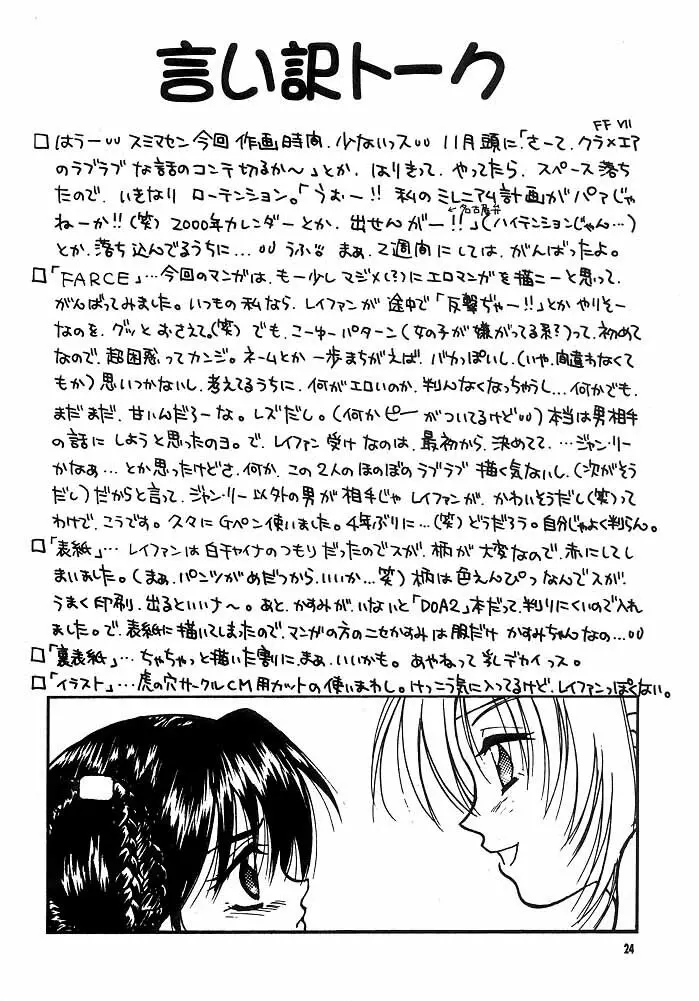 言い訳トーク
FF VII
□はうー〃スミマセン今回作画時間、少ないっス〃11月頭に「さーて、クラ×エア
のラブラブな話のコンテ切るか〜」とか、はりきって、やってたら、スペース落ち
たので、いきなりローテンション。「うおー!!私のミレニアム計画がパアじゃ
←名古屋弁
ねーか!!(笑)2000年カレンダーとか、出せんがー!!」(ハイテンションじゃん…)
とか、落ち込んでるうちに…〃うふ まぁ、2週間にしては、がんばったよ。
□「FARCE」…今回のマンガは、もー少しマジメ(?)にエロマンガを描こーと思って、
がんばってみました。いつもの私なら、レイファンが途中で「反撃ぢゃー!!」とかやりそー
なのを、グッとおさえて。(笑)でも、こーゆーパターン(女の子が嫌がってる系?)って、初めて
なので、超困惑ってカンジ。ネームとか一歩まちがえば、バカっぽいし、(いや、間違わなくて
もか)思いつかないし、考えてるうちに、何がエロいのか、判んなくなっちゃうし…何かでも、
まだまだ、甘いんだろーな。レズだし。(何かピーがついてるけど〃)本当は男相手
の話にしようと思ったのヨ。で、レイファン受けなのは、最初から、決めてて、…ジャン・リー
かなぁ…とか思ったけどさ、何か、この2人のほのぼのラブラブ描く気ないし、(次がそう
だし)だからと言って、ジャン・リー以外の男が相手じゃレイファンが、かわいそうだし(笑)って
わけで、こうです。久々にGペン使いました。4年ぶりに…(笑)どうだろう。自分じゃよく判らん。
□「表紙」…レイファンは白チャイナのつもりだったのでスが、柄が大変なので、赤にしてし
まいました。(まぁ、パンツがめだつから、いいか…笑)柄は色えんぴつなんでスが、
うまく印刷、出るといいナ〜。あと、かすみがいないと「DOA2」本だって、判りにくいので入れ
ました。で、表紙に描いてしまったので、マンガの方のニセかすみは服だけかすみちゃんなの…〃
□「裏表紙」…ちゃちゃっと描いた割に、まぁ、いいかも。あやねって乳デカイっス。
□「イラスト」…虎の穴サークルCM用カットの使いまわし。けっこう気に入ってるけど、レイファンっぽくない。
24